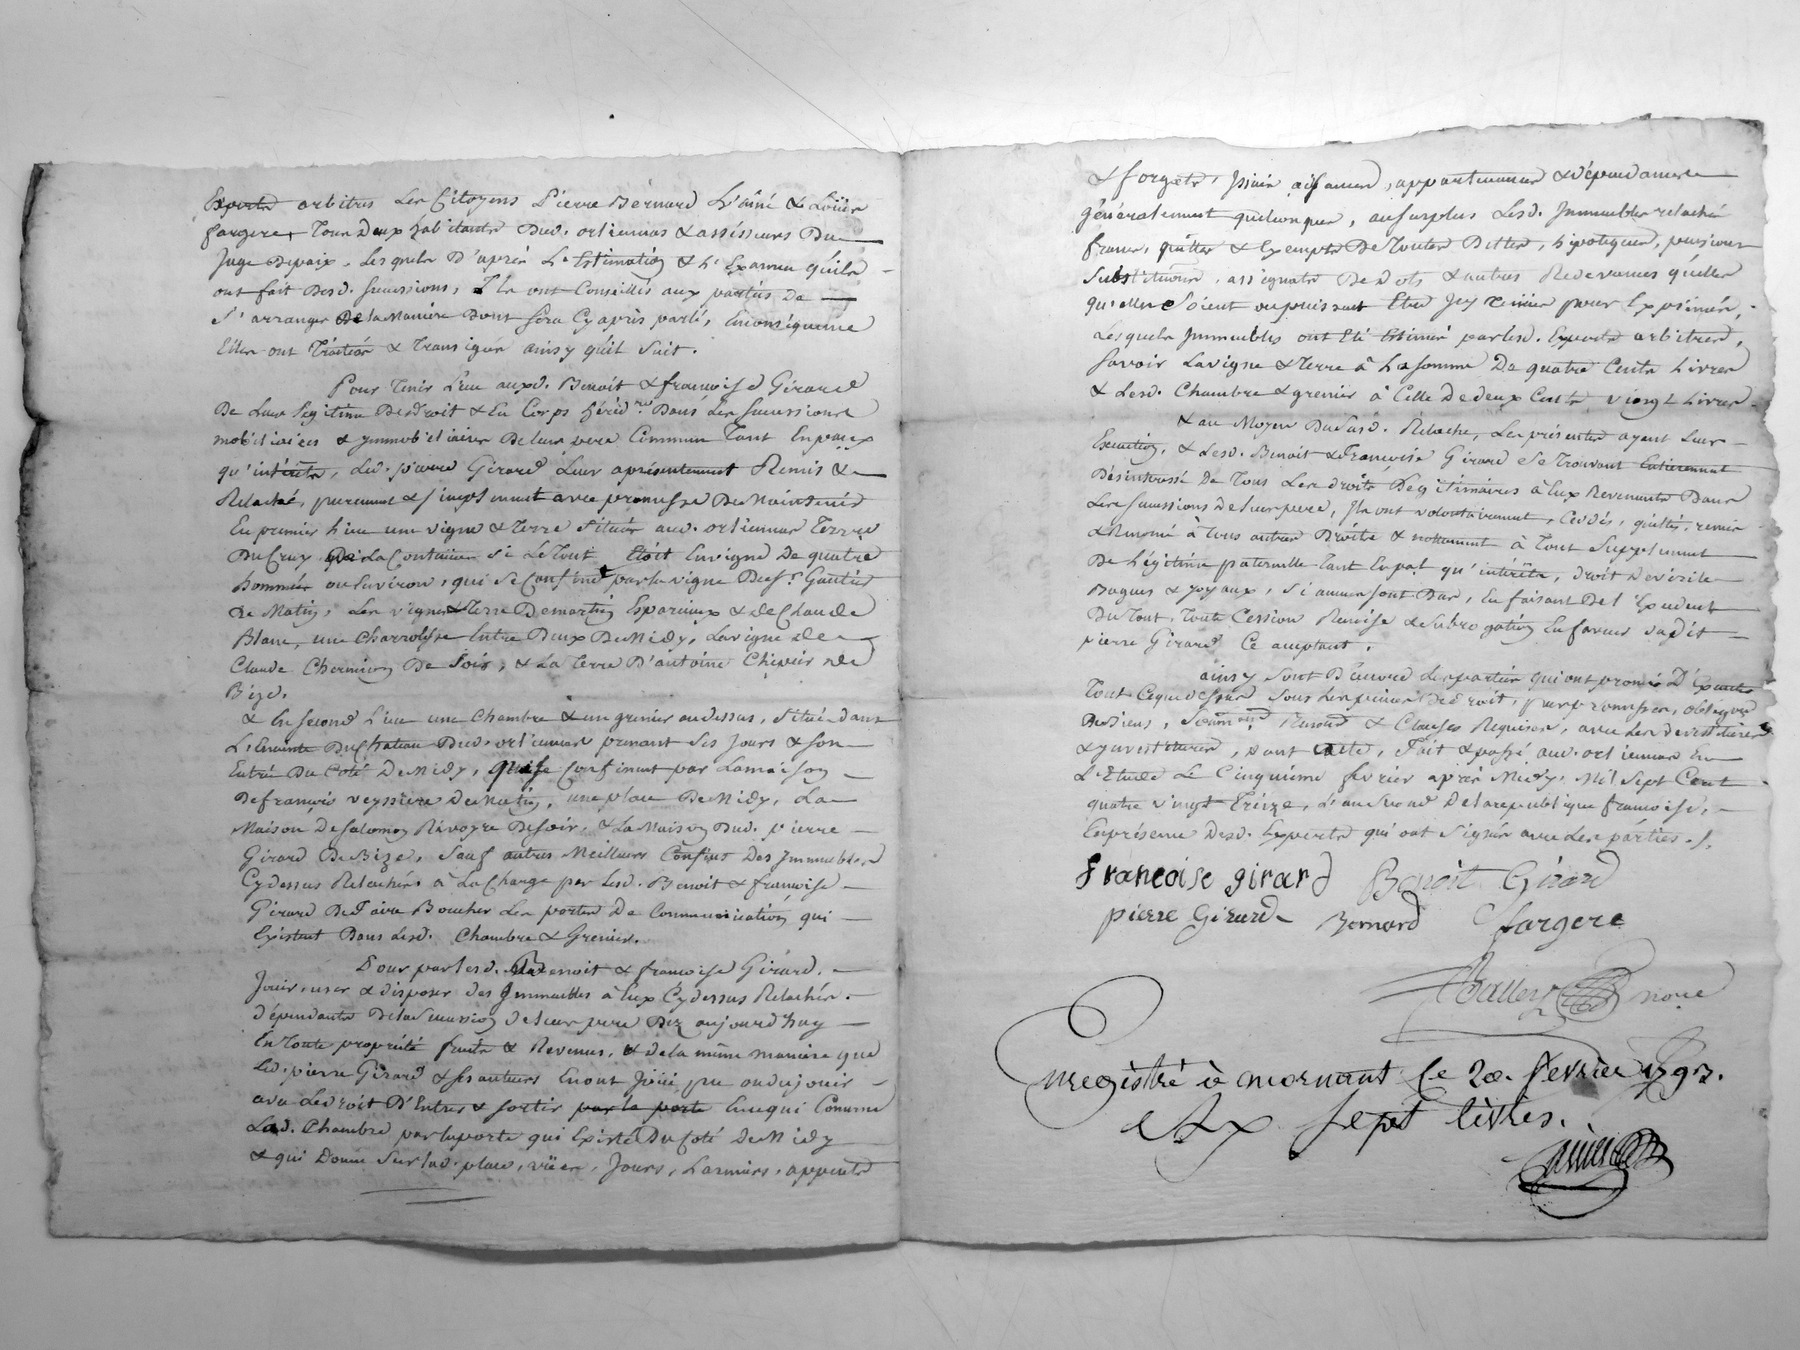 Experts arbitres Les Citoyens Pierre Bernard L'ainé & Loüis
fargere, Tous Deux habitants Dud. orliennas & assésseurs Du
Juge Depaix, Lesquels D'après L'Estimation & L'Examen qu'ils
ont fait Desd. successions, Ils ont Conseillés aux parties De
S'arranger De la Maniere Dont sera Cy après parlé, Enconséquence
Elles ont Traitées & Transigées ainsy qu'il suit.
Pour Tenir Lieu auxd. Benoit & françoise Girard
De Leur Légitime De droit & En Corps héréd.re Dans Les successions
mobiliaires & ymmobiliaires De leur pere Commun Tant En paux
qu'intérêts, Led. pierre Girard Leur a présentement Remis &
Relaché, purement & simplement avec promesse De Maintenir
En premier Lieu une vigne & Terre située aud. orliennas Terroir
Du Cruy De La Contenüe si Le Tout Etoit En vigne De quatre
hommées ou Environ, qui se Confine par la vigne Du Sr. Gautier
De Matin, Les vignes & Terre De martin Esparcieux & de Claude
Blanc, une Charroliere Entre Deux De Midy, La vigne de
Claude Chermion De Soir, & La Terre D'antoine Chipier de
Bize.
& En second Lieu une Chambre & un grenier au dessus, située dans
L'Enceinte Du Chateau Dud. orliennas prenant ses Jours & son
Entrée Du Coté De Midy, qui se Confinent par La maison
De françois veyssiere De Matin, une place De Midy, La
Maison De salomon Ravoyre De soir, & La Maison Dud. pierre
Girard De Bize, sauf autres Meilleurs Confins Des Immeubles
Cy dessus Relachés à La Charge par Lesd. Benoit & françoise
Girard De Faire Boucher Les portes De Communication qui
Existent Dans Lesd. Chambre & Grenier.
Pour par lesd. Benoit & françoise Girard,
Joüir, user & disposer Des Immeubles à Eux Cy dessus Relachés
dépendants De la succession De leur pere Dez aujourd'huy
En Toute propriété fruits & Revenus, & de la même maniere que
Led. pierre Girard & ses auteurs En ont Joüi pu ou du joüir
avec Le droit D'Entrer & sortir par la porte Encequi Concerne
Lad. Chambre par la porte qui Existe Du Coté De Midy
& qui Donne Sur lad. place, vües, Jours, Larmiers, appents
& forgets, aisances, appartenances & dépendances
généralement quelconques, au surplus Lesd. Immeubles relachés
francs, quittes & Exempts De Toutes Dettes, hipoteques, pensions
Substitutions, assignats De Dots & autres Redevances quelles
qu'elles Soient ou puissent Etre Icy Tenües pour Exprimées,
Lesquels Immeubles ont Eté Estimés par lesd. Experts arbitres,
Savoir La vigne & Terre à La somme De quatre Cents Livres
& Lesd. Chambre & grenier à Celle De deux Cents vingt Livres
& au Moyen Dususd. Relache, Les présentes ayant Leur
Execution, & Lesd. Benoit & Françoise Girard se Trouvant Entierement
Désintéréssé De Tous Les droits Légitimaires à Eux Revenants Dans
Les successions De leur pere, Ils ont volontairement, Cédés, quittés, remis
à Tous autres Droits & notament à Tout Supplement
De Légitime paternelle Tant En pal qu'intérêts, Droit De virile
Bagues & Joyaux, Si aucuns sont Dus, En faisant De l'Excedent
Du Tout, Toute Cession Remise & Subrogation En faveur Dudit
pierre Girard Ce acceptant.
ainsy sont D'accord Les parties qui ont promis D'Executer
Tout Ceque dessus Sous Les peines De droit, par promesses, obligons
De Biens, Renons & Clauses Requises, avec Les devestitures
& ynvestitures, Dont acte, Fait & passé aud. orliennas En
L'Etude Le Cinquieme fevrier après Midy, Mil sept Cent
quatre vingt treize, L'an second De la republique francoise,
En présence Desd. Experts qui ont signés avec Les parties./.
francoise girard Benoît Girard
pierre Girard Bernard fargere
nore
Enregistré à mornant le 20. fevrier 1793.
sept livres.